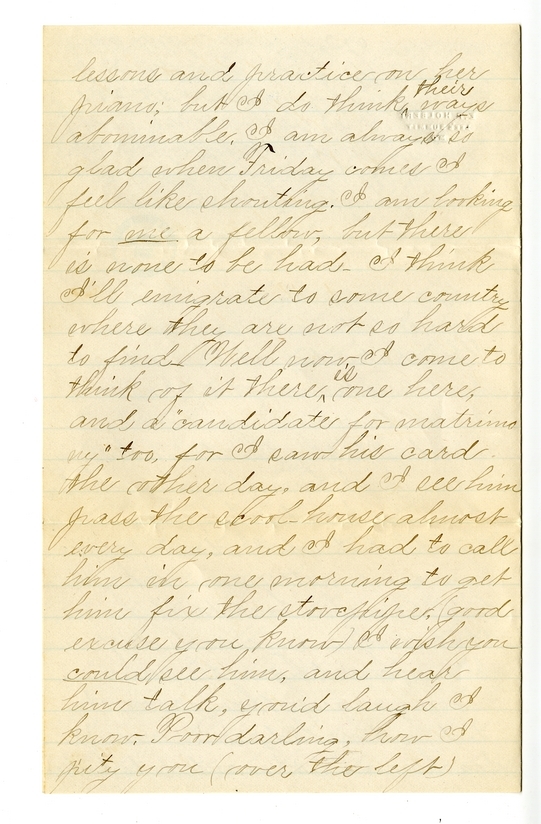 lessons and practice on her
piano; but I do think their ways
abominable. I am always so
glad when Friday comes I
feel like shouting. I am looking
for me a fellow, but there
is none to be had - I think
I'll emigrate to some country
where they are not so hard
to find - Well now I come to
think of it there is one here,
and a "candidate for matrimo
ny" too, for I saw his card.
the other day, and I see him
pass the scool-house almost
every day, and I had to call
him in one morning to get
him fix the stovepipe, (good
excuse you know) I wish you
could see him, and hear
him talk, you'd laugh I
know. Poor darling, how I
pity you (over the left)